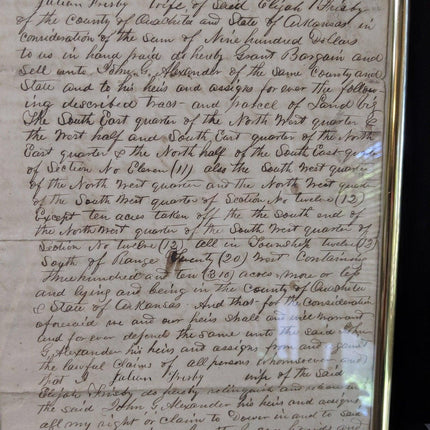 Julien Frisby wife of Said Elijah Frisby
of the County of Ouachita and State of Arkansas in
consideration of the Sum of Nine hundred Dollars
to us in hand paid do hereby Grant Bargain and
Sell unto John G. Alexander of the same County and
State and to his heirs and assigns for ever the follow-
ing described tracs and parcel of Land viz
The South East quarter of the North West quarter &
the West half and South East quarter of the North
East quarter & the North half of the South East quarter
of Section No Eleven (11) also the South West quarter
of the North West quarter and the North West quarter
of the South West quarter of Section No twelve (12)
Except ten acres taken off the the South end of
the North West quarter of the South West quarter of
Section No twelve (12) all in Township twelve (12)
South of Range Twenty (20) West Containing
three hundred and ten (310) acres more or less
and lying and being in the County of Ouachita
& State of Arkansas And that for the Consideration
aforesaid we and our heirs shall and will warrant
and for ever defend the same unto the said John
G. Alexander his heirs and assigns from and against
the lawful Claims of all persons whomsoever and
that I Julien Frisby wife of the said
Elijah Frisby do hereby relinquish and release unto
the said John G. Alexander his heirs and assigns
all my right or claim to Dower in and to said
hands and